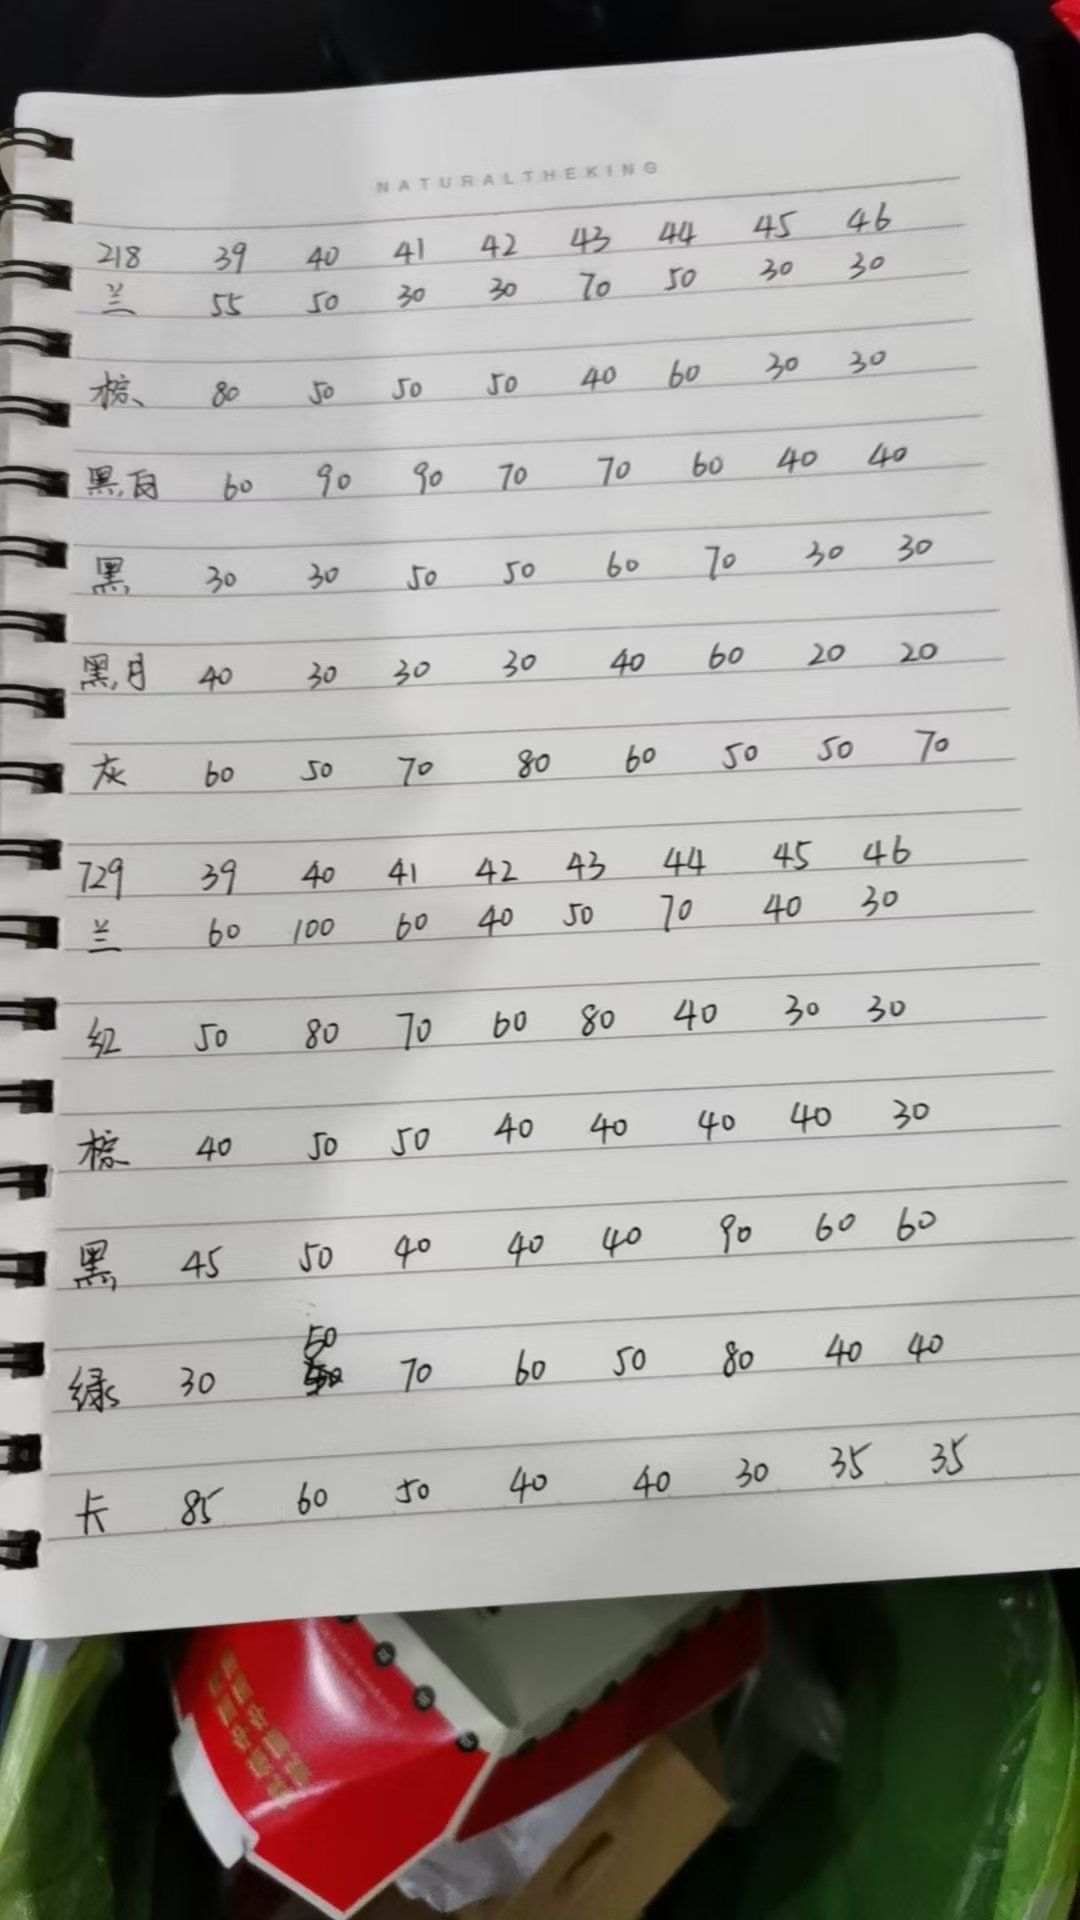 NATURALTHEKING
218 39 40 41 42 43 44 45 46
兰 55 50 30 30 70 50 30 30
棕 80 50 50 50 40 60 30 30
黑白 60 90 90 70 70 60 40 40
黑 30 30 50 50 60 70 30 30
黑月 40 30 30 30 40 60 20 20
灰 60 50 70 80 60 50 50 70
729 39 40 41 42 43 44 45 46
兰 60 100 60 40 50 70 40 30
红 50 80 70 60 80 40 30 30
棕 40 50 50 40 40 40 40 30
黑 45 50 40 40 40 90 60 60
绿 30 50 70 60 50 80 40 40
卡 85 60 50 40 40 30 35 35